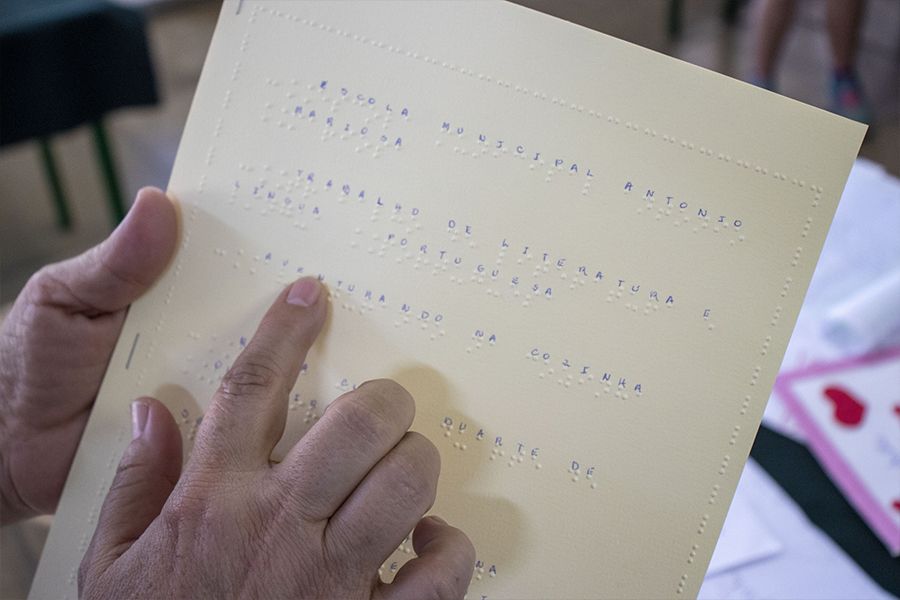 ESCOLA MUNICIPAL ANTONIO
MARIOSA
TRABALHO DE LITERATURA E
LÍNGUA PORTUGUESA
AVENTURANDO NA COZINHA
DUARTE DE